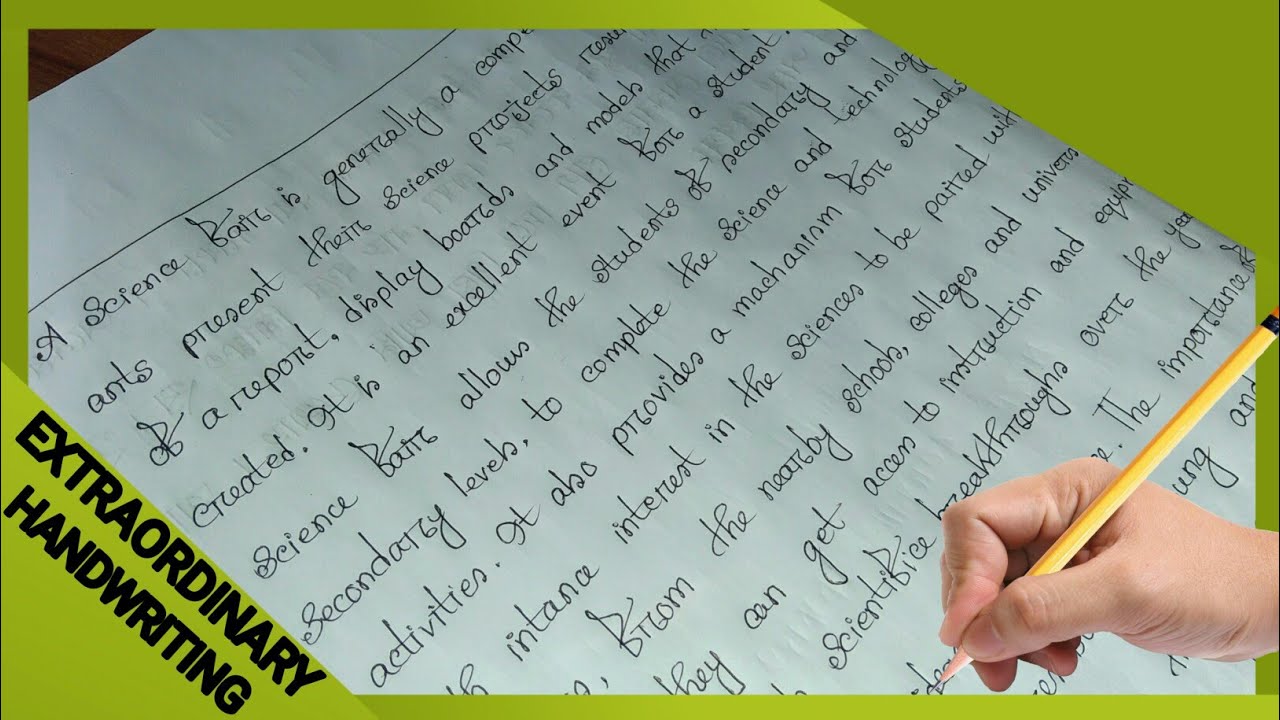 A Science Fair is generally a compe
ants present their Science projects resu
of a report, display boards and models that
created. It is an excellent event for a student.
Science Fair allows the students of secondary and
Secondary levels, to complete the science and technolog
activities. It also provides a machanism for students
intance interest in the sciences to be paired with
From the nearby schools, colleges and univers
they can get access to instruction and equip
Scientifice breakthroughs over the yea
The importance of
ung and
EXTRAORDINARY
HANDWRITING